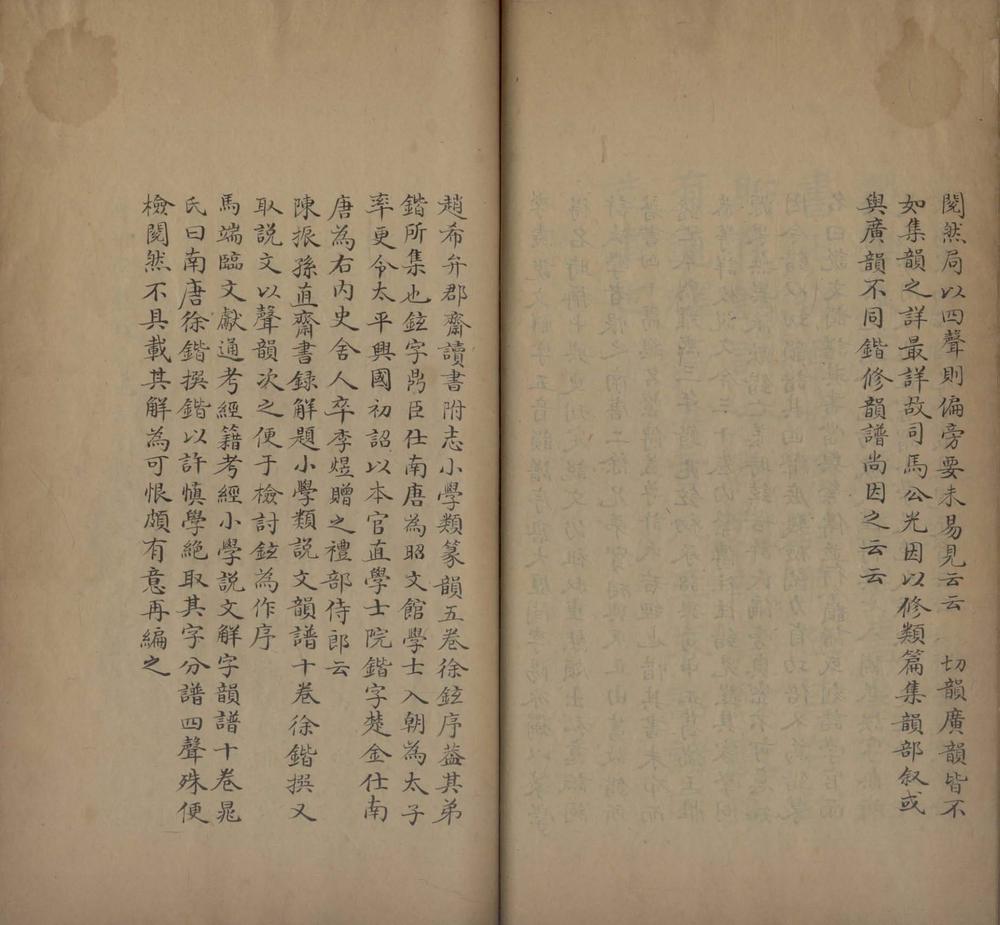 閱然局以四聲則偏旁要未易見云云　切韻廣韻皆不
如集韻之詳最詳故司馬公光因以修類篇集韻部叙或
與廣韻不同鍇修韻譜尚因之云云
趙希弁郡齋讀書附志小學類篆韻五卷徐鉉序葢其弟
鍇所集也鉉字鼎臣仕南唐為昭文館學士入朝為太子
率更令太平興國初詔以本官直學士院鍇字楚金仕南
唐為右內史舍人卒李煜贈之禮部侍郎云
陳振孫直齋書録解題小學類說文韻譜十卷徐鍇撰又
取説文以聲韻次之便于檢討鉉為作序
馬端臨文獻通考經籍考經小學説文解字韻譜十卷晁
氏曰南唐徐鍇撰鍇以許慎學絶取其字分譜四聲殊便
檢閱然不具載其解為可恨頗有意再編之